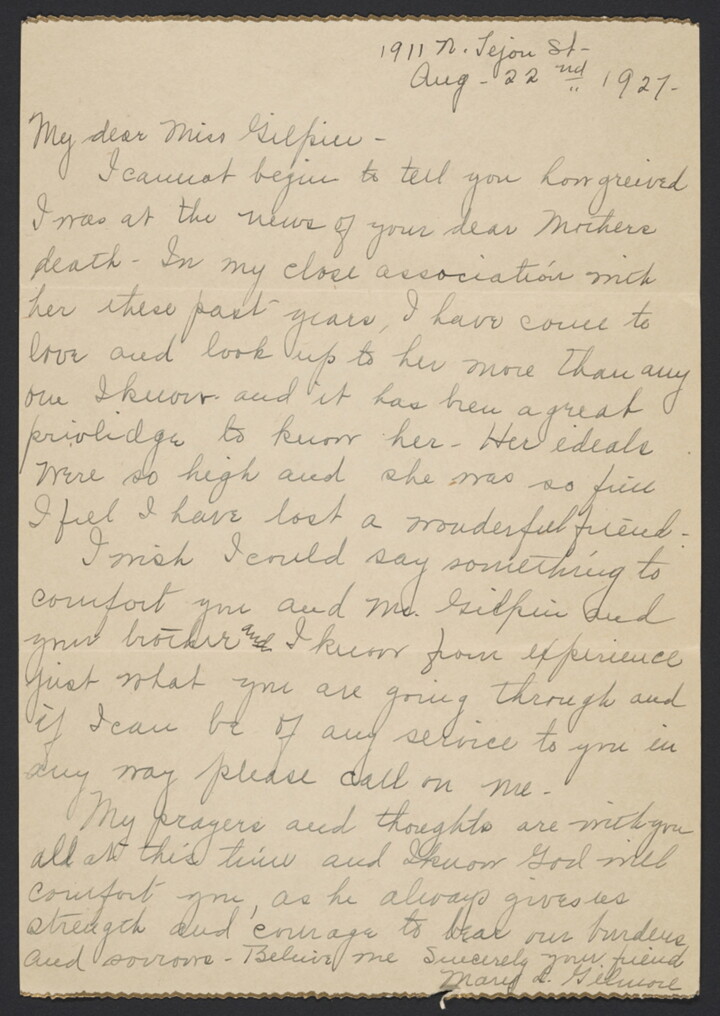 1911 N. Tejon St-
Aug - 22nd 1927-
My dear Miss Gilpin -
I cannot begin to tell you how greived
I was at the news of your dear Mothers
death - In my close association with
her these past years, I have come to
love and look up to her more than any
one I know - and it has been a great
privlidge to know her - Her ideals
were so high and she was so fine
I feel I have lost a wonderful friend -
I wish I could say something to
comfort you and Mr. Gilpin and
your brother and I know from experience
just what you are going through and
if I can be of any service to you in
any way please call on me -
My prayers and thoughts are with you
all at this time and I know God will
comfort you, as he always gives us
strength and courage to bear our burdens
and sorrows - Believe me Sincerely your friend
Mary L. Gilmore